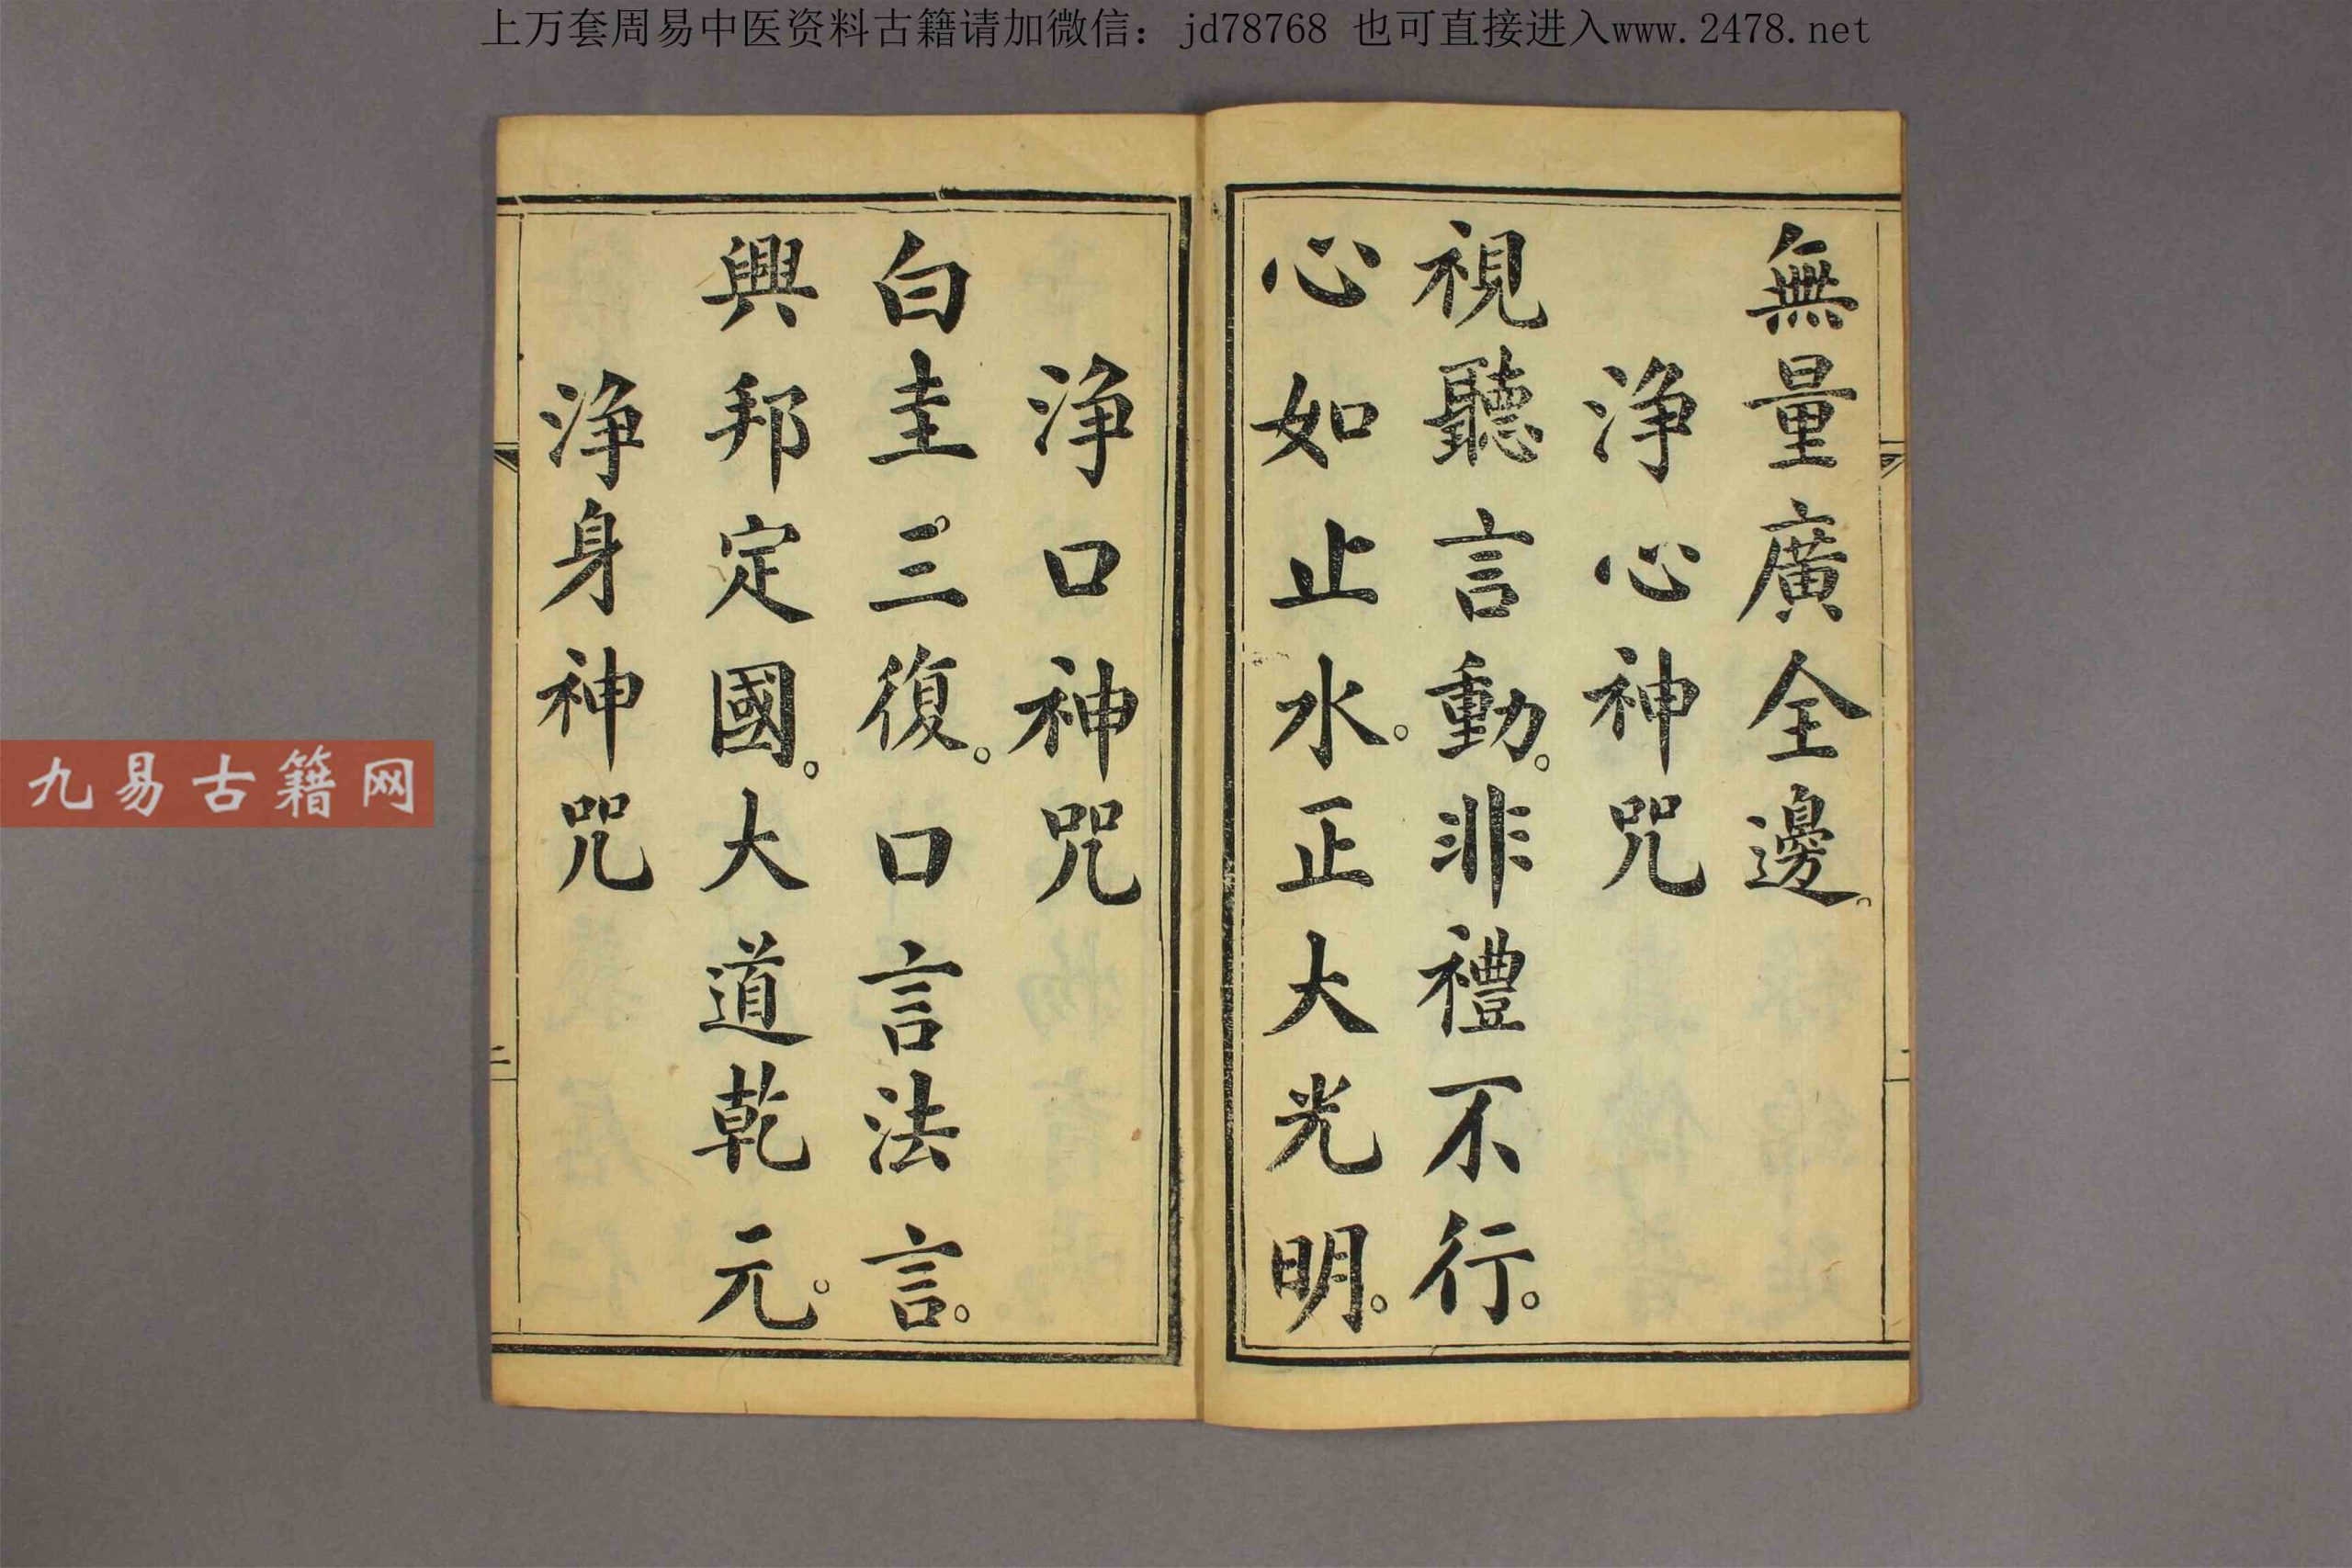 上万套周易中医资料古籍请加微信：jd78768 也可直接进入www.2478.net
無量廣全邊。
淨心神咒
視聽言動。非禮不行。
心如止水。正大光明。
淨口神咒
白圭三復。口言法言。
興邦定國。大道乾元。
淨身神咒
二
九易古籍网